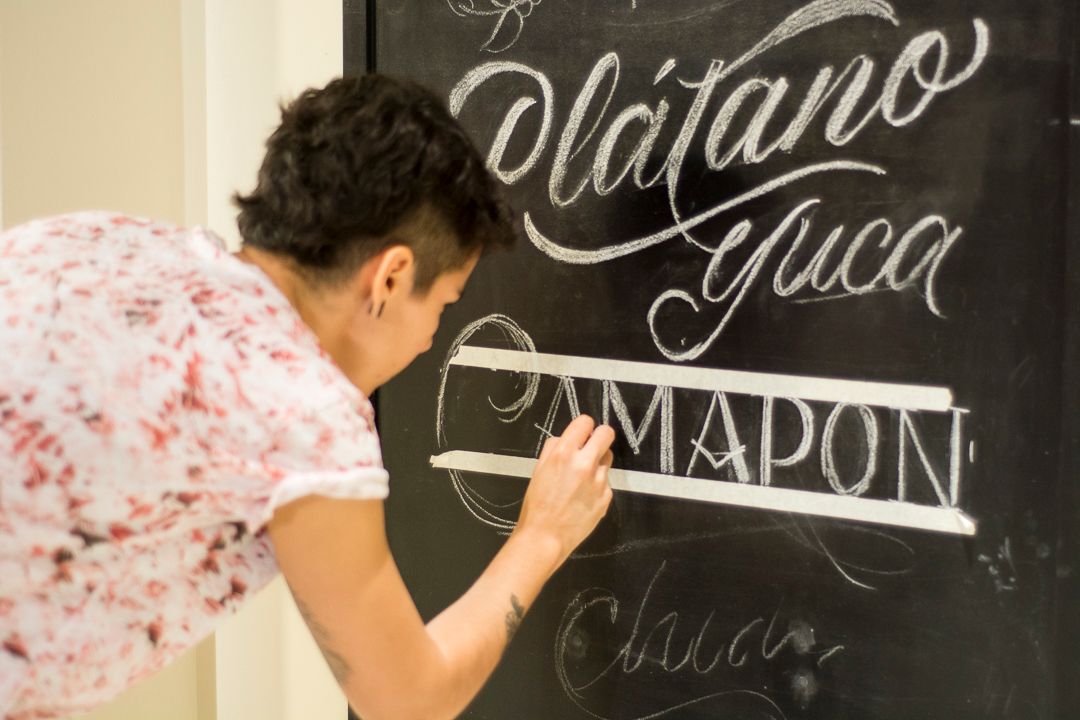 Plátano
yuca
CAMAPON